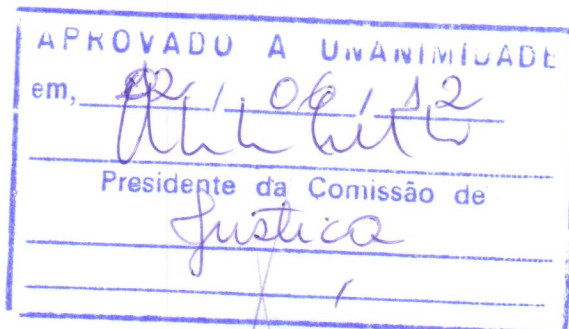 APROVADO A UNANIMIDADE
em, / 06 / 12
Presidente da Comissão de
Justiça